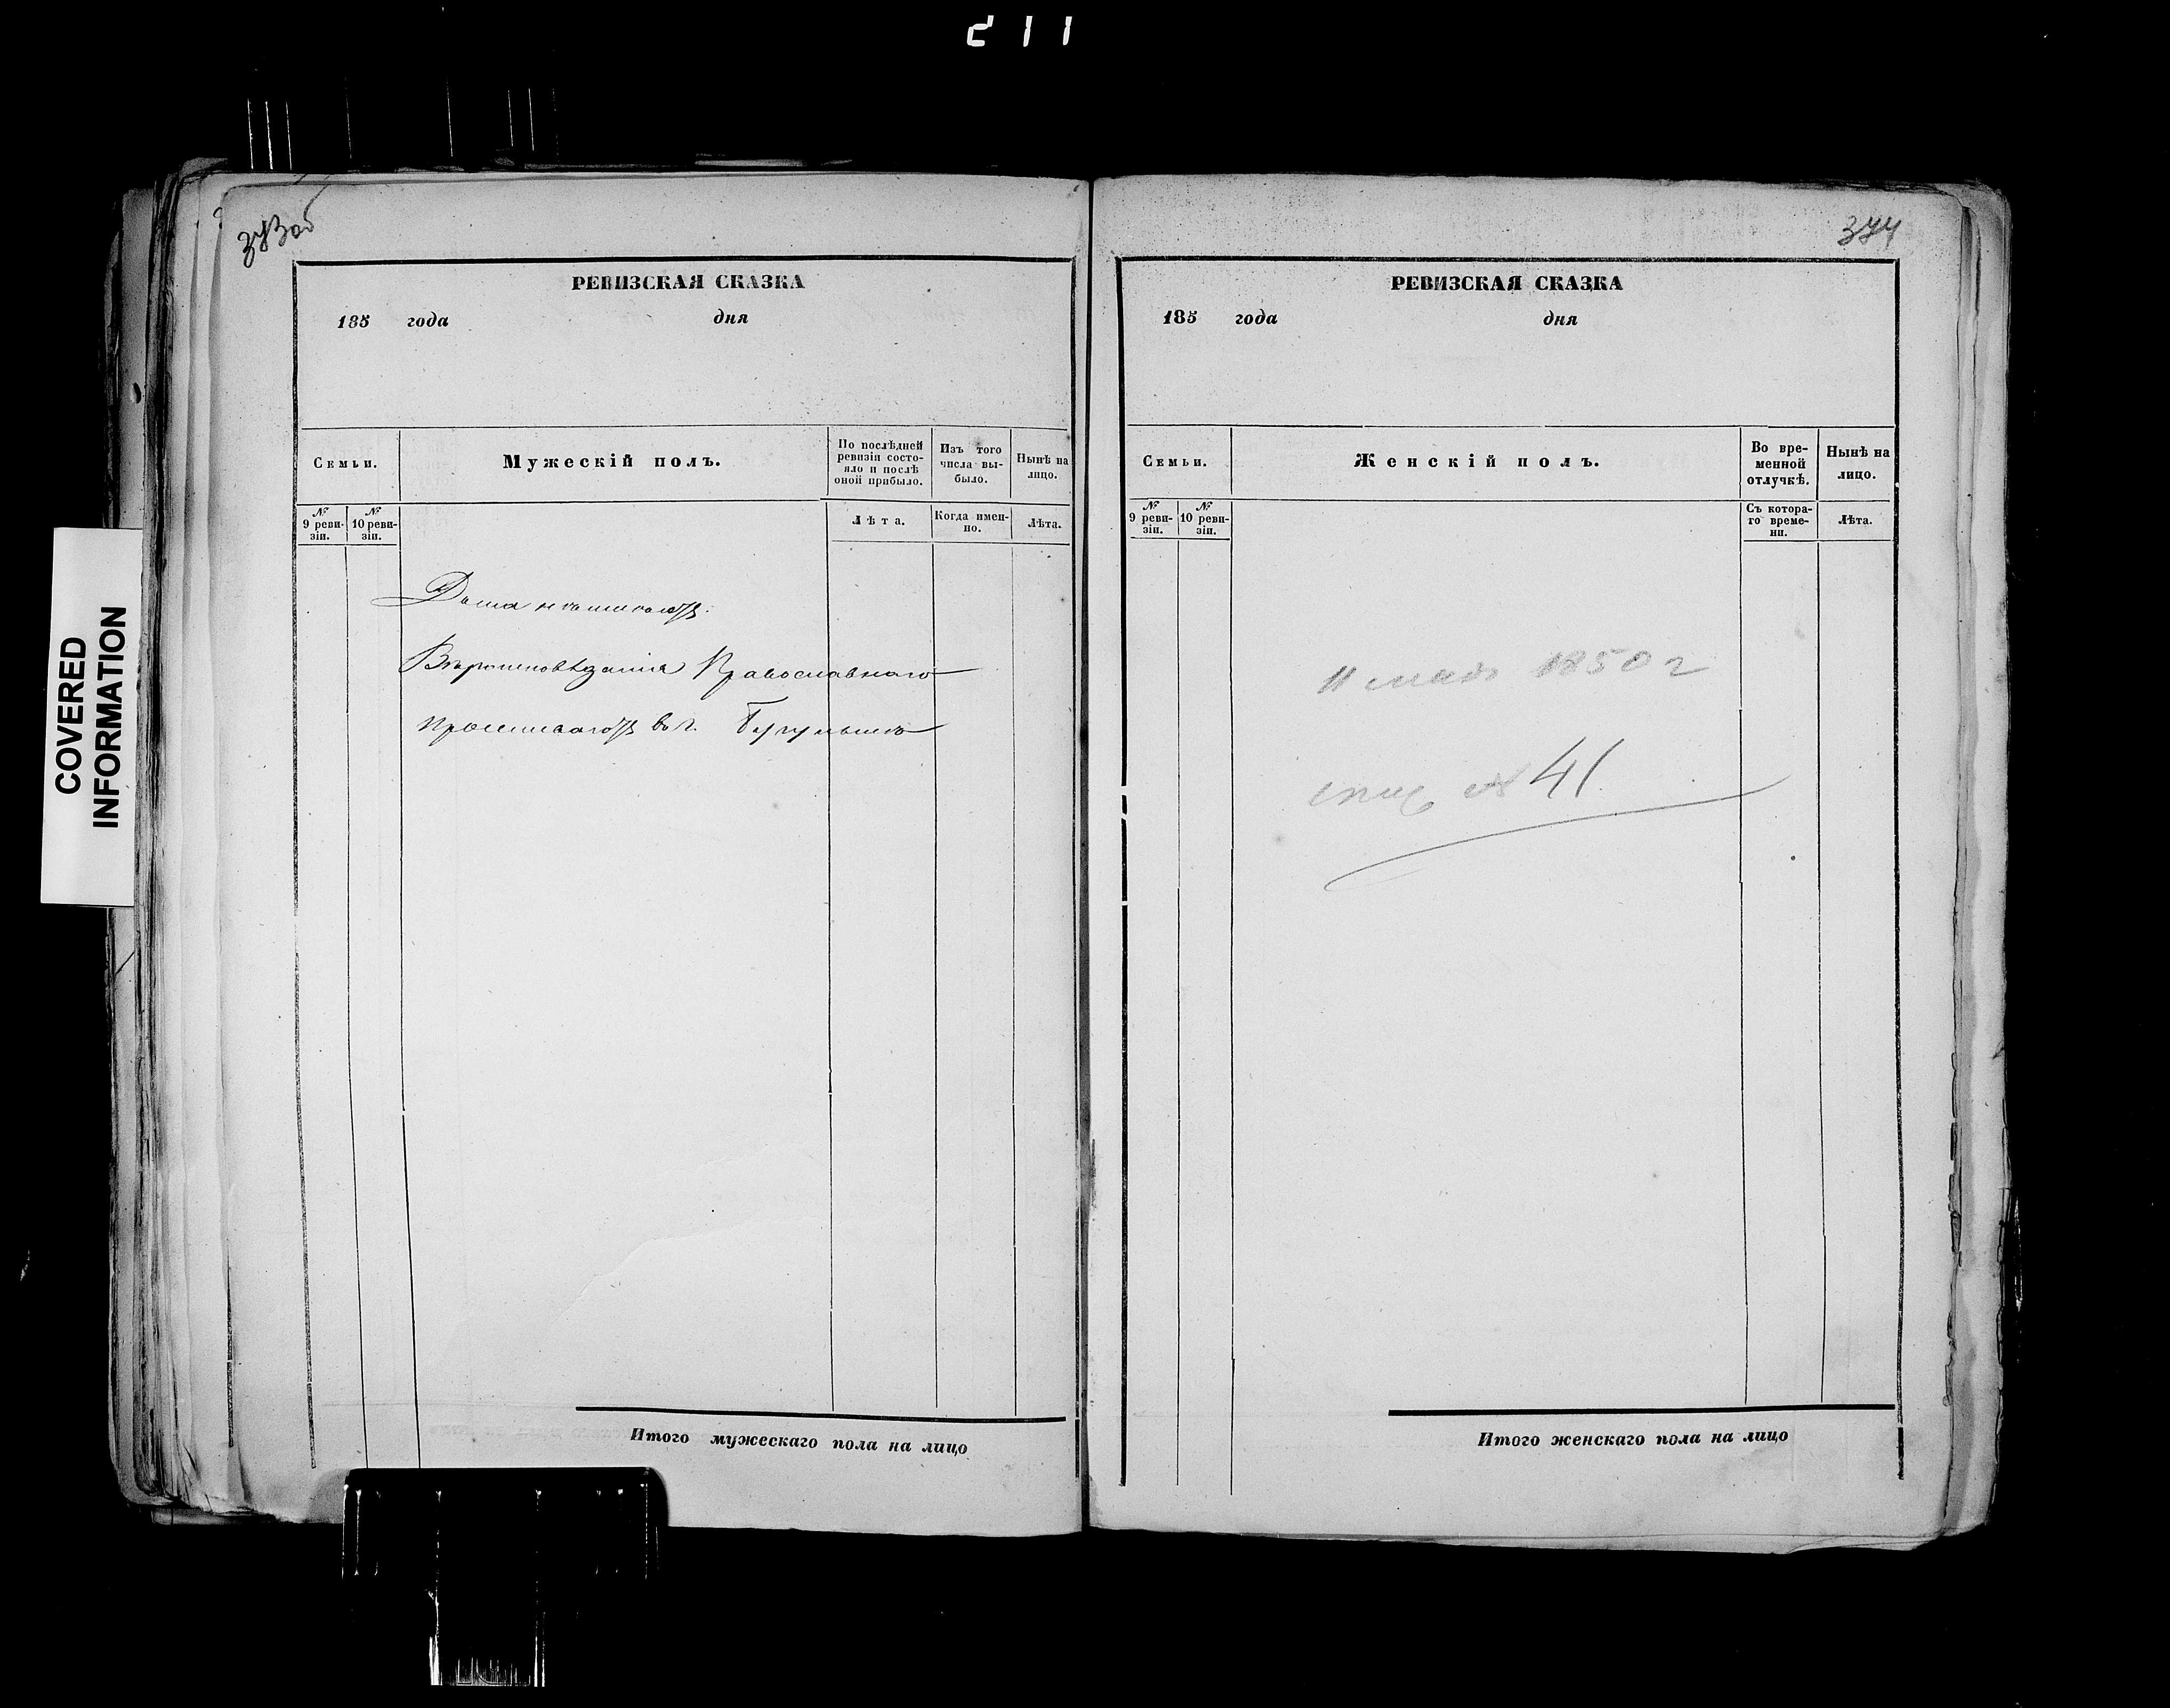 211
373об
РЕВИЗСКАЯ СКАЗКА
185 года дня
Семьи.
Мужескій полъ.
По послѣдней ревизіи состо-
яло и послѣ
оной прибыло.
Изъ того
числа вы-
было.
Нынѣ на
лицо.
№
9 реви-
зіи.
№
10 реви-
зіи.
Лѣта.
Когда имен-
но.
Лѣта.
Дома не имеютъ.
Вѣроисповѣданія Православнаго
Проживаютъ въ г. Бугульмѣ
Итого мужескаго пола на лицо
COVERED
INFORMATION
374
РЕВИЗСКАЯ СКАЗКА
185 года дня
Семьи.
Женскій полъ.
Во вре-
менной
отлучкѣ.
Нынѣ на
лицо.
№
9 реви-
зіи.
№
10 реви-
зіи.
Съ котора-
го време-
ни.
Лѣта.
11 мая 1850 г
№ 41
Итого женскаго пола на лицо